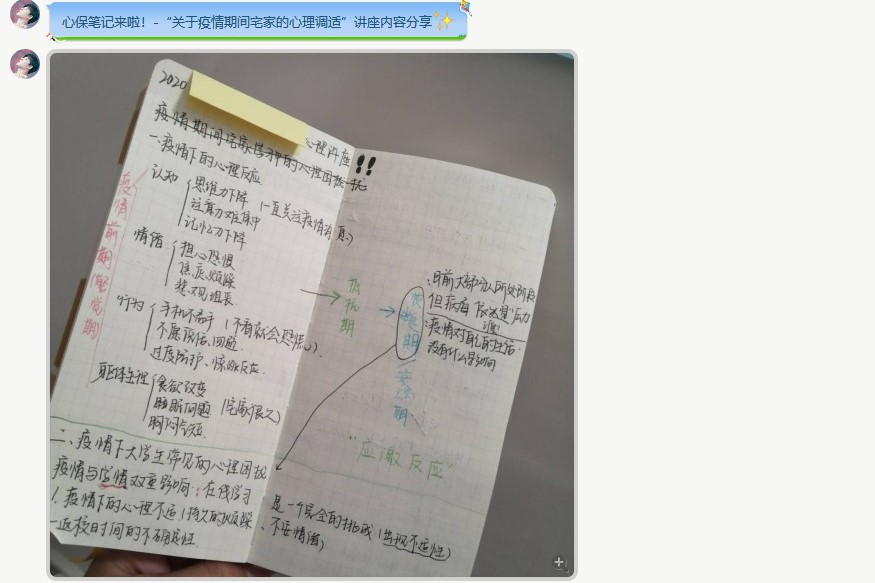 心保笔记来啦！-“关于疫情期间宅家的心理调适”讲座内容分享✨
2020
疫情期间宅家学习中的心理困扰
心理讲座!!
一、疫情下的心理反应
认知
思维力下降
注意力难集中 (一直关注疫情消息)
记忆力下降
情绪
担心恐惧
焦虑烦躁
悲观沮丧
行为
手机不离手 (不看就会恐慌)
不愿说话、回避
过度防护、惊跳反应
身体生理
食欲改变
睡眠问题 (宅家很久)
胸闷气短
疫情前期(警觉期)
→ 抵抗期
→ 疲惫期
目前大部分人所处阶段
但病看
:疫情对自己的生活
没有什么影响
“应激反应”
二、疫情下大学生常见的心理困扰
疫情与学情双重影响:在线学习
1.疫情下的心理不适(持久的烦躁、不安情绪)
—返校日时间的不确定性
是一个完全的挑战(出现不适性)